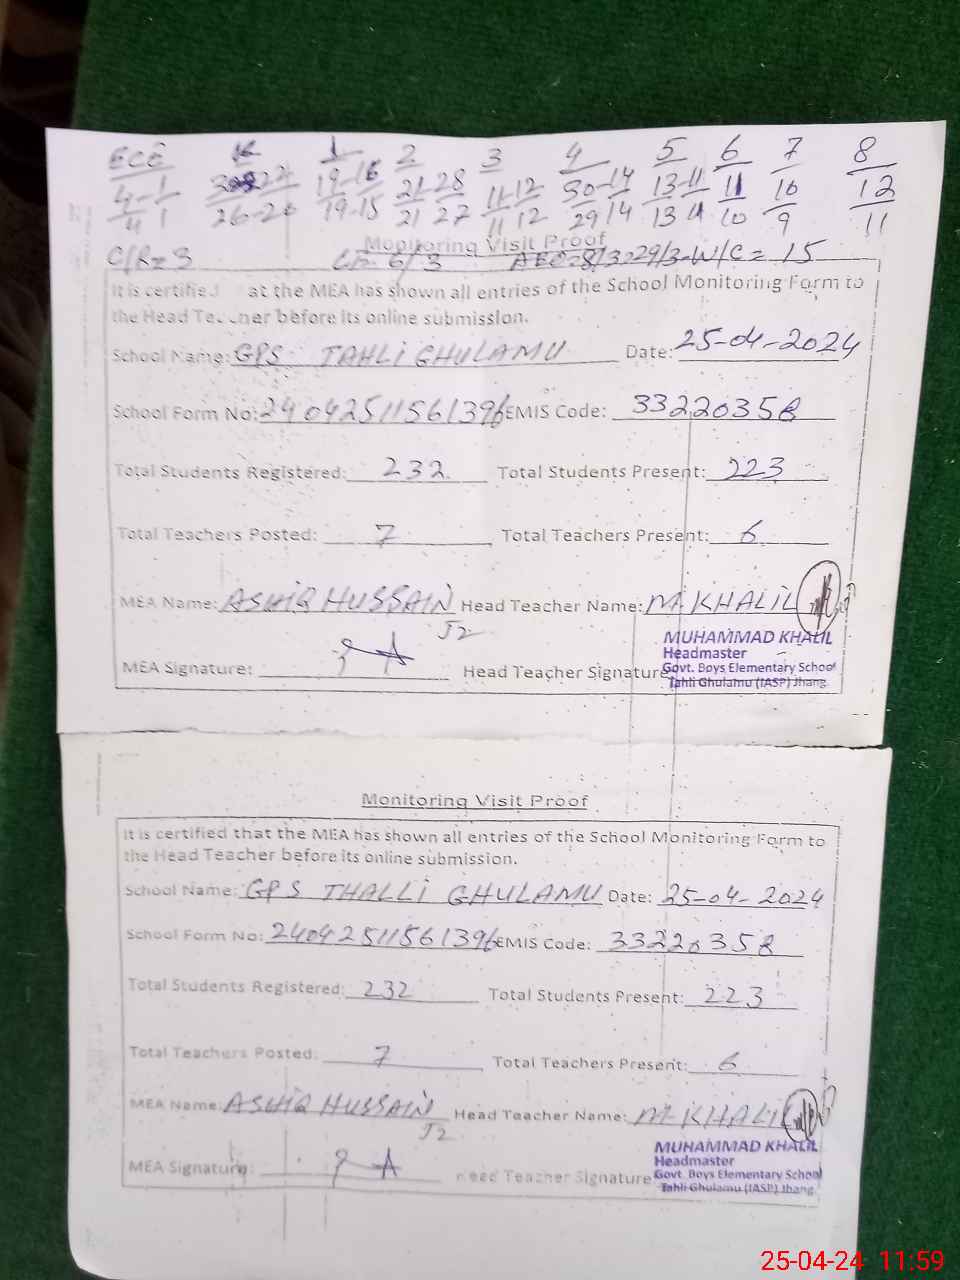 ECE K 1 2 3 4 5 6 7 8
4-1/1 19-16 21 28 11-12 30-14 13-11 11 10 12
4 1 26-20 19-15 21 27 11 12 29 14 13 11 10 9 11
C/R=3 6/3 W/C=15
Monitoring Visit Proof
It is certified at the MEA has shown all entries of the School Monitoring Form to
the Head Teacher before its online submission.
School Name: GPS TAHLI GHULAMU Date: 25-04-2024
School Form No: 24042511561396 EMIS Code: 33220358
Total Students Registered: 232 Total Students Present: 223
Total Teachers Posted: 7 Total Teachers Present: 6
MEA Name: ASHIQ HUSSAIN Head Teacher Name: M. KHALIL
J2
MUHAMMAD KHALIL
Headmaster
MEA Signature: Head Teacher Signature Govt. Boys Elementary School
Tahli Ghulamu (IASP) Jhang.
Monitoring Visit Proof
It is certified that the MEA has shown all entries of the School Monitoring Form to
the Head Teacher before its online submission.
School Name: GPS THALLI GHULAMU Date: 25-04-2024
School Form No: 24042511561396 EMIS Code: 33220358
Total Students Registered: 232 Total Students Present: 223
Total Teachers Posted: 7 Total Teachers Present: 6
MEA Name: ASHIQ HUSSAIN Head Teacher Name: M KHALIL
J2
MUHAMMAD KHALIL
Headmaster
MEA Signature: Head Teacher Signature Govt. Boys Elementary School
Tahli Ghulamu (IASP) Jhang.
25-04-24 11:59